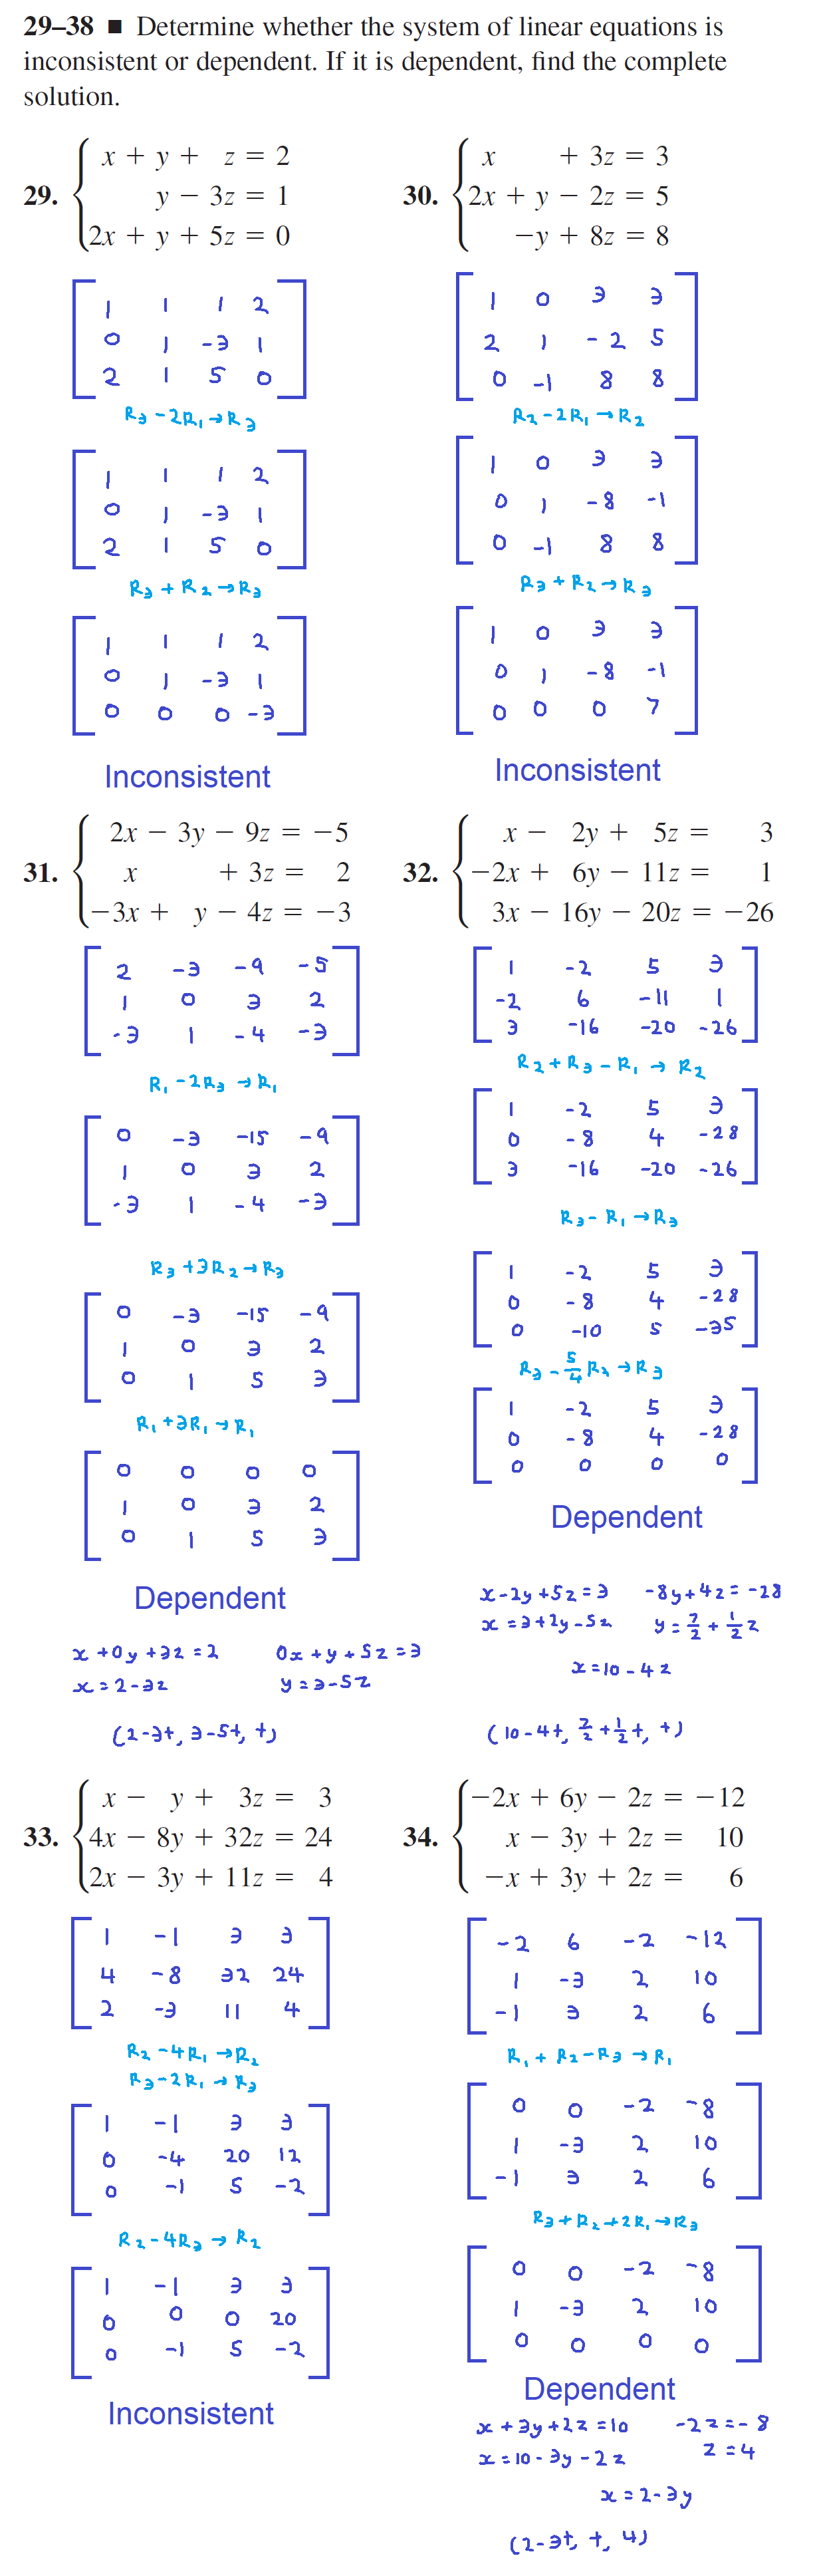 29–38 ■ Determine whether the system of linear equations is
inconsistent or dependent. If it is dependent, find the complete
solution.
29. x + y + z = 2
y − 3z = 1
2x + y + 5z = 0
30. x + 3z = 3
2x + y − 2z = 5
−y + 8z = 8
1 1 1 2
0 1 -3 1
2 1 5 0
R3 - 2R1 → R3
1 1 1 2
0 1 -3 1
2 1 5 0
R3 + R2 → R3
1 1 1 2
0 1 -3 1
0 0 0 -3
Inconsistent
1 0 3 3
2 1 -2 5
0 -1 8 8
R2 - 2R1 → R2
1 0 3 3
0 1 -8 -1
0 -1 8 8
R3 + R2 → R3
1 0 3 3
0 1 -8 -1
0 0 0 7
Inconsistent
31. 2x − 3y − 9z = −5
x + 3z = 2
−3x + y − 4z = −3
32. x − 2y + 5z = 3
−2x + 6y − 11z = 1
3x − 16y − 20z = −26
2 -3 -9 -5
1 0 3 2
-3 1 -4 -3
R1 - 2R3 → R1
0 -3 -15 -9
1 0 3 2
-3 1 -4 -3
R3 + 3R2 → R3
0 -3 -15 -9
1 0 3 2
0 1 5 3
R1 + 3R1 → R1
0 0 0 0
1 0 3 2
0 1 5 3
Dependent
x + 0y + 3z = 2 0x + y + 5z = 3
x = 2 - 3z y = 3 - 5z
(2-3t, 3-5t, t)
1 -2 5 3
-2 6 -11 1
3 -16 -20 -26
R2 + R3 - R1 → R2
1 -2 5 3
0 -8 4 -28
3 -16 -20 -26
R3 - R1 → R3
1 -2 5 3
0 -8 4 -28
0 -10 5 -35
R3 - 5/4 R2 → R3
1 -2 5 3
0 -8 4 -28
0 0 0 0
Dependent
x - 2y + 5z = 3 -8y + 4z = -28
x = 3 + 2y - 5z y = 7/2 + 1/2 z
x = 10 - 4z
(10-4t, 7/2 + 1/2 t, t)
33. x − y + 3z = 3
4x − 8y + 32z = 24
2x − 3y + 11z = 4
34. −2x + 6y − 2z = −12
x − 3y + 2z = 10
−x + 3y + 2z = 6
1 -1 3 3
4 -8 32 24
2 -3 11 4
R2 - 4R1 → R2
R3 - 2R1 → R3
1 -1 3 3
0 -4 20 12
0 -1 5 -2
R2 - 4R3 → R2
1 -1 3 3
0 0 0 20
0 -1 5 -2
Inconsistent
-2 6 -2 -12
1 -3 2 10
-1 3 2 6
R1 + R2 - R3 → R1
0 0 -2 -8
1 -3 2 10
-1 3 2 6
R3 + R2 + 2R1 → R3
0 0 -2 -8
1 -3 2 10
0 0 0 0
Dependent
x + 3y + 2z = 10 -2z = -8
x = 10 - 3y - 2z z = 4
x = 2 - 3y
(2-3t, t, 4)